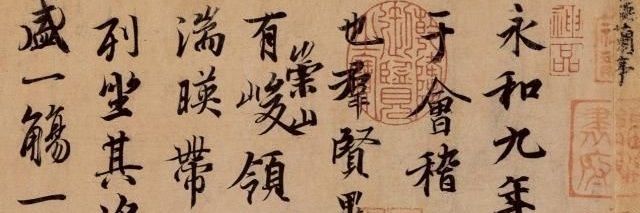 蘭亭
神品
永和九年
于會稽
也羣賢畢
有崇山峻領
湍暎帶
列坐其次
盛一觴一